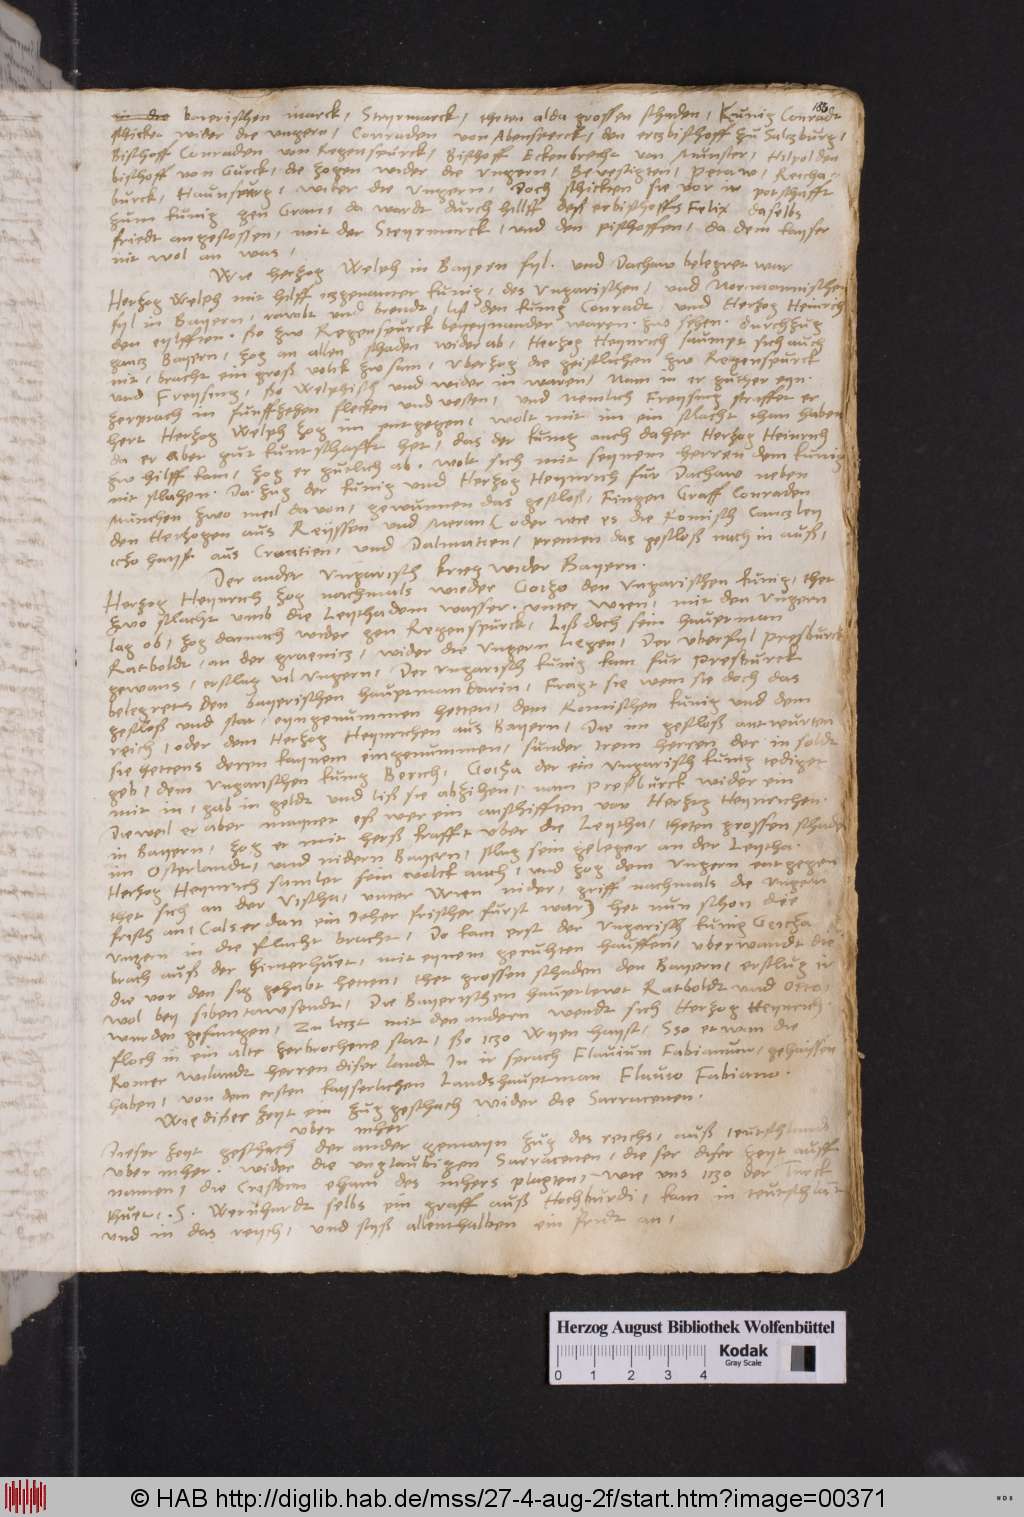 186
in die bayerischen marck, Steyrmarck, theten alda grossen schaden, Kunig Conradt
schicket wider die ungern, Conraden von Abensperck, den erczbischoff zu Salczburg,
Bischoff Conraden von Regenspurck, Bischoff Eckenbrecht von Munster, Hilpolden
bischoff von Gurck, die zogen wider die ungern, Bevestigten, Petaw, Reicha-
burck, Haunspurg, wider die ungern, Doch schickten sie vor ir potschafft
zum kunig gen Gran, da wardt durch hilff des erbischoffs Felix daselbs
friedt angestossen, mit der Steyrmarck, und den pischoffen, da dem kayser
nit wol an was,
Wie herzog Welph in Bayern fyl. und Dachaw belegret war
Herzog Welph mit hilff iczgenanter kunig, des ungarischen, und Normannischen
fyl in Bayern, rawbt und brendt, liß den kunig Conradt, und Herzog Heinrich
den eylfften. So zw Regenspurck beyeynander waren. zuo sehen. durchzug
gancz Bayern, zog an allen schaden wider ab, Herzog Heynrich saumpt sich auch
nit, bracht ein groß volck zwsam, uberzog die geistlichen zw Regenspurck
und Freysing, So Welphisch und wider in waren, nam in er guther eyn.
zerprach in funffzehen flecken und vesten, und nemlich Freysing straffet er
hert Herzog Welph zog im entgegen, wolt mit im ein slacht than haben
da er aber gut kuntschafft het, das der kunig auch daher Herzog Heinrich
zw hilff kam, zog er gutlich ab. wolt sich mit seynem herren dem kunig
nit slahen. Da zug der kunig und Herzog Heynrich fur Dachaw neben
Munchen zwo meil davon, gewunnen das geschloß, Fingen Graff Conraden
den Herzogen aus Reyssen und Meran (oder wie es die Romisch Canczley
iczo hayst aus Croatien, und Dalmatien, prenten das geschloß nach in auß,
Der ander ungarisch krieg wider Bayern.
Herzog Heynrich zog nachmals wieder Geicza den ungarischen kunig, thet
zwo slacht umb die Leytha dem wasser. unter Wien, mit den ungern
lag ob, zog darnach wider gen Regenspurck, Liß doch sein hauptman
Ratboldt, an der graenicz, wider die ungern ligen, Der uberfyl Presburck
gewans, erslag vil ungern, Der ungarisch kunig kam fur Presburck
belegrets den bayerischen hauptman darin, Fragt sie wem sie doch das
geschloß und stat, eyngenummen hetten, dem Romischen kunig und dem
reich, oder dem Herzog Heynrichen aus Bayern, Die im geschloß antwurten
sie hettens deren kaynem eingenummen, sunder irem herren der in soldt
geb, dem ungarischen kunig Berich, Geicza der ein ungarisch kunig tediget
mit in, gab in geldt und liß sie abzihen, nam Presburck wider ein
Dieweil er aber maynet eß wer ein anschifften von Herzog Heynrichen.
in Bayern, zog er mit herß krafft uber die Leytha, theten grossen schaden
im Osterlandt, und nidern Bayern, slug sein geleger an der Leytha.
Herzog Heynrich samlet sein volck auch, und zog dem ungern entgegen
thet sich an der Vischa, unter Wien nider, griff nachmals die ungern
frisch an, (als er dan ein seher frischer furst war) het nun schon die
ungern in die flucht bracht, Do kam erst der ungarisch kunig Geicza
brach auß der hinterhuet, mit eynem geruhten hauffen, uberwandt die
die vor den sig gehabt hetten, thet grossen schaden den Bayern, erslug ir
wol bey siben tawsendt, Die Bayerischen hauptlewt Ratboldt und Otto,
wurden gefangen, Zu leczt mit den andern wendt sich Herzog Heynrich.
floch in ein alte zerbrochene stat, so iczo Wyen hayst, Sso etwan die
Romer weilandt herren diser landt In ir sprach Flavium Fabianum, gehaissen
haben, von dem ersten kayserlichen Landshauptman Flavio Fabiano.
Wie diser zeyt ein zug geschach wider die Sarracenen.
uber mher
Dieser zeyt geschach der ander gemayn zug des reichs, auß teutschlandt
uber mher. wider die unglaubigen Sarracenen, die ser diser zeyt auff
namen, die Cristen enhalb des mhers plagten, wie uns iczo der Turck
thuet. S. Bernhardt selbs ein graff auß Hochburdi, kam in teutschlant
und in das reych, und stifft allenthalben ein fridt an,
Herzog August Bibliothek Wolfenbüttel
Kodak
Gray Scale
0 1 2 3 4
© HAB http://diglib.hab.de/mss/27-4-aug-2f/start.htm?image=00371